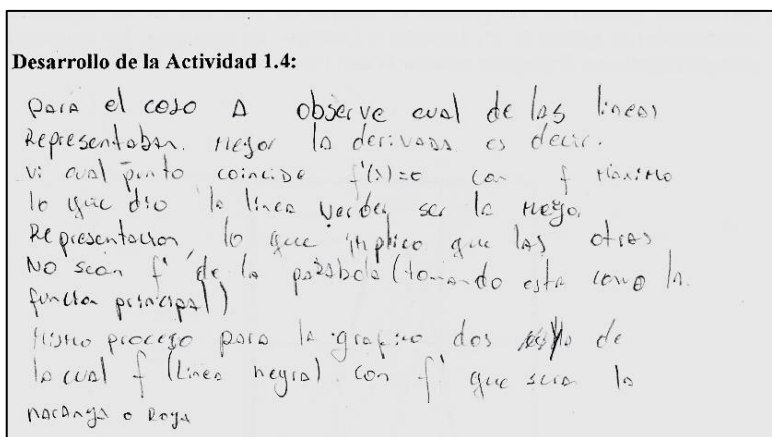 Desarrollo de la Actividad 1.4:
para el caso A observe cual de las lineas
Representaban. Mejor la derivada es decir.
vi cual punto coincide f'(x)=0 con f Maximo
lo que dio la linea verde, ser la Mejor
Representacion, lo que implico que las otras
No sean f' de la parabola (tomando esta como la.
funcion principal)
Mismo proceso para la grafica dos de
la cual f (Linea negra) con f' que seria la
naranja o Roja